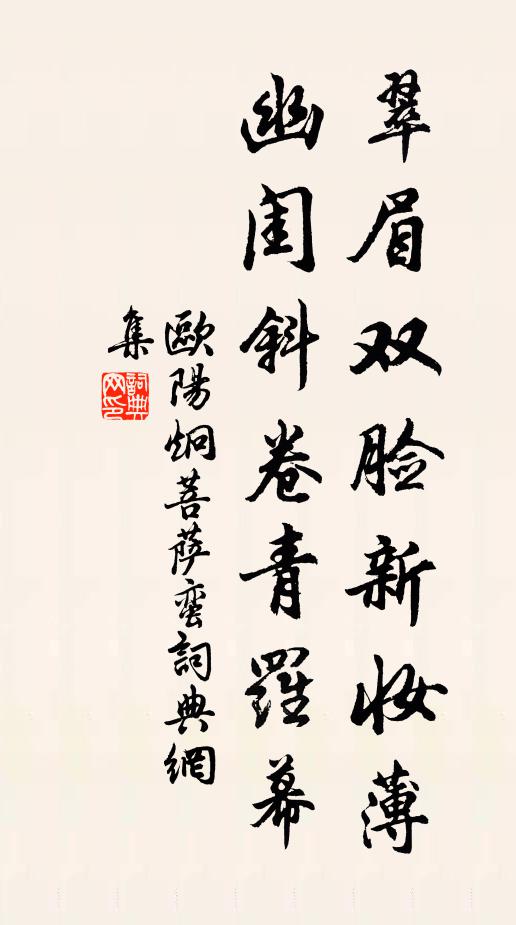 翠眉双脸新妆薄
幽闺斜卷青羅幕
歐陽炯菩萨蛮詞典網
集
詞典网印